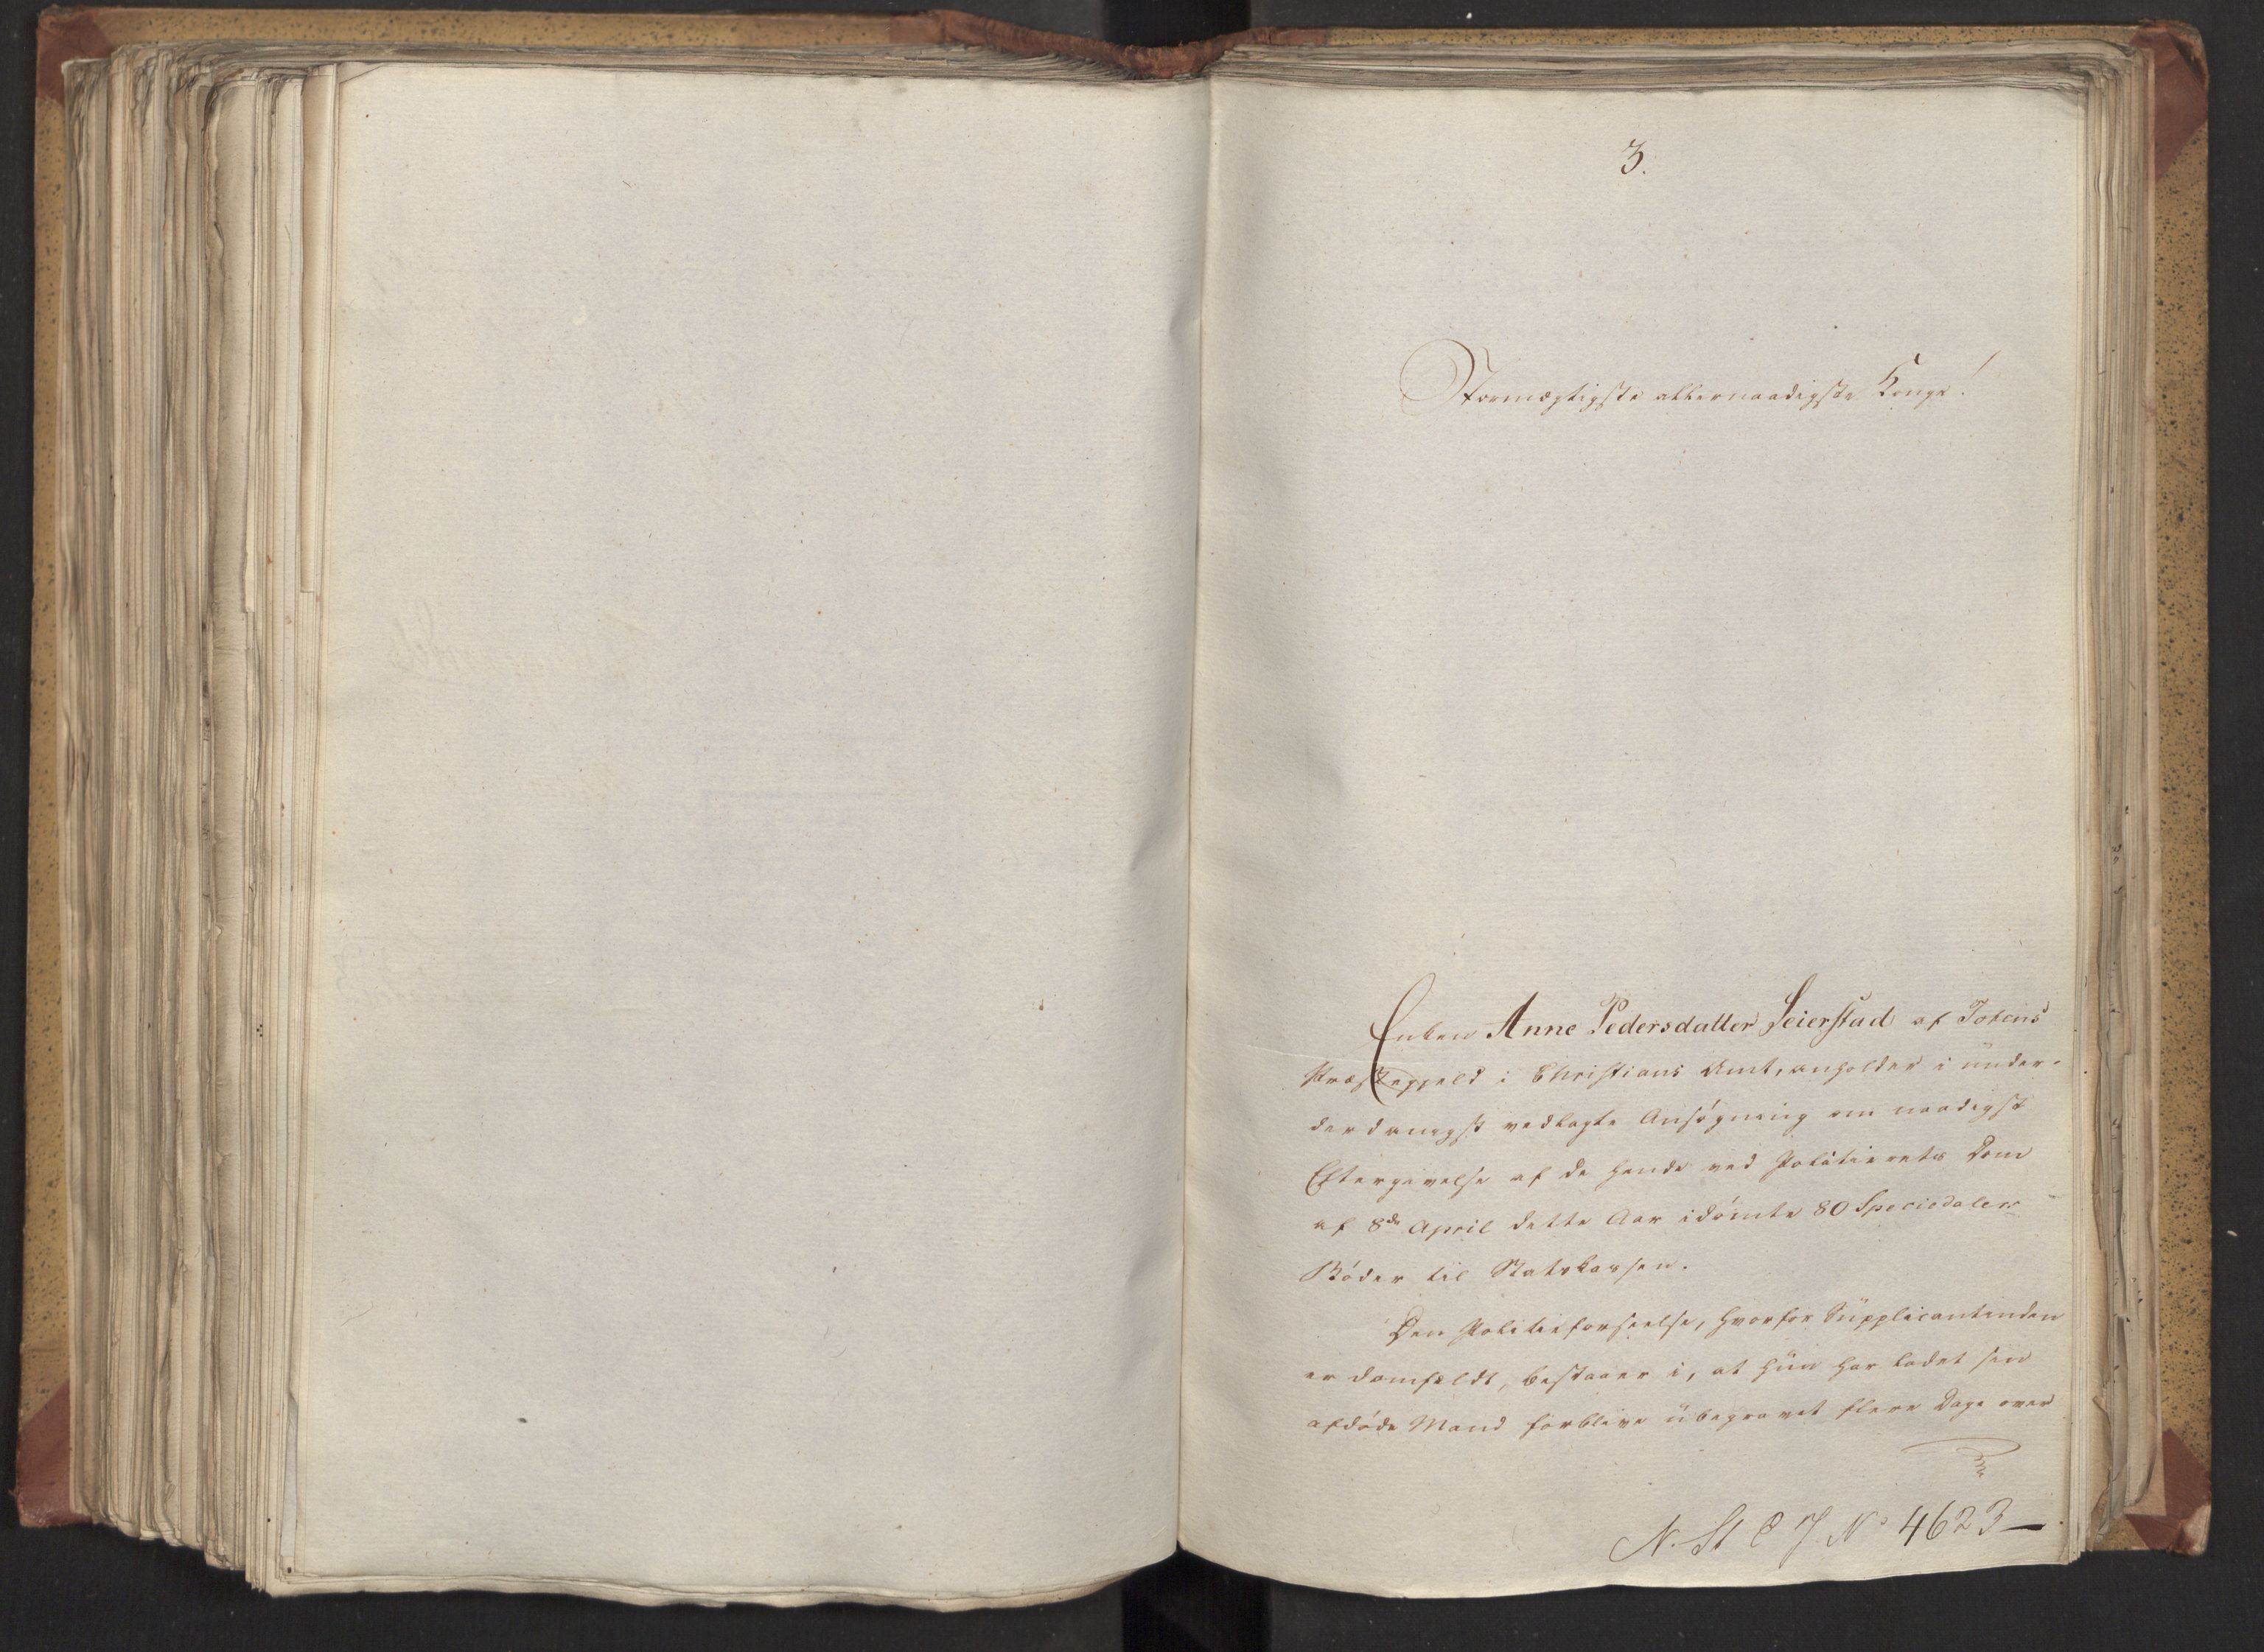 3.
Stormægtigste allernaadigste Konge!
Enken Anne Pedersdatter Seierstad af Totens
Præstegjeld i Christians Amt, anholder i under-
derdanigst vedlagte Ansøgning om naadigst
Eftergivelse af de hende ved Politierets Dom
af 8de April dette Aar idømte 80 Speciedaler
Bøder til Statskassen.
Den Politieforseelse, hvorfor Supplicantinden
er domfeldt, bestaaer i, at hun har ladet sin
afdøde Mand forblive ubegravet flere Dage over
N. St E J. No 4623 —